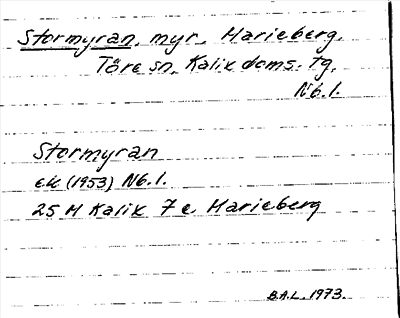 Stormyran, myr, Marieberg,
Töre sn, Kalix doms. tg,
Nb.l.
Stormyran
ek (1953) Nb.l.
25 M Kalix 7 e Marieberg
B.A.L. 1973.